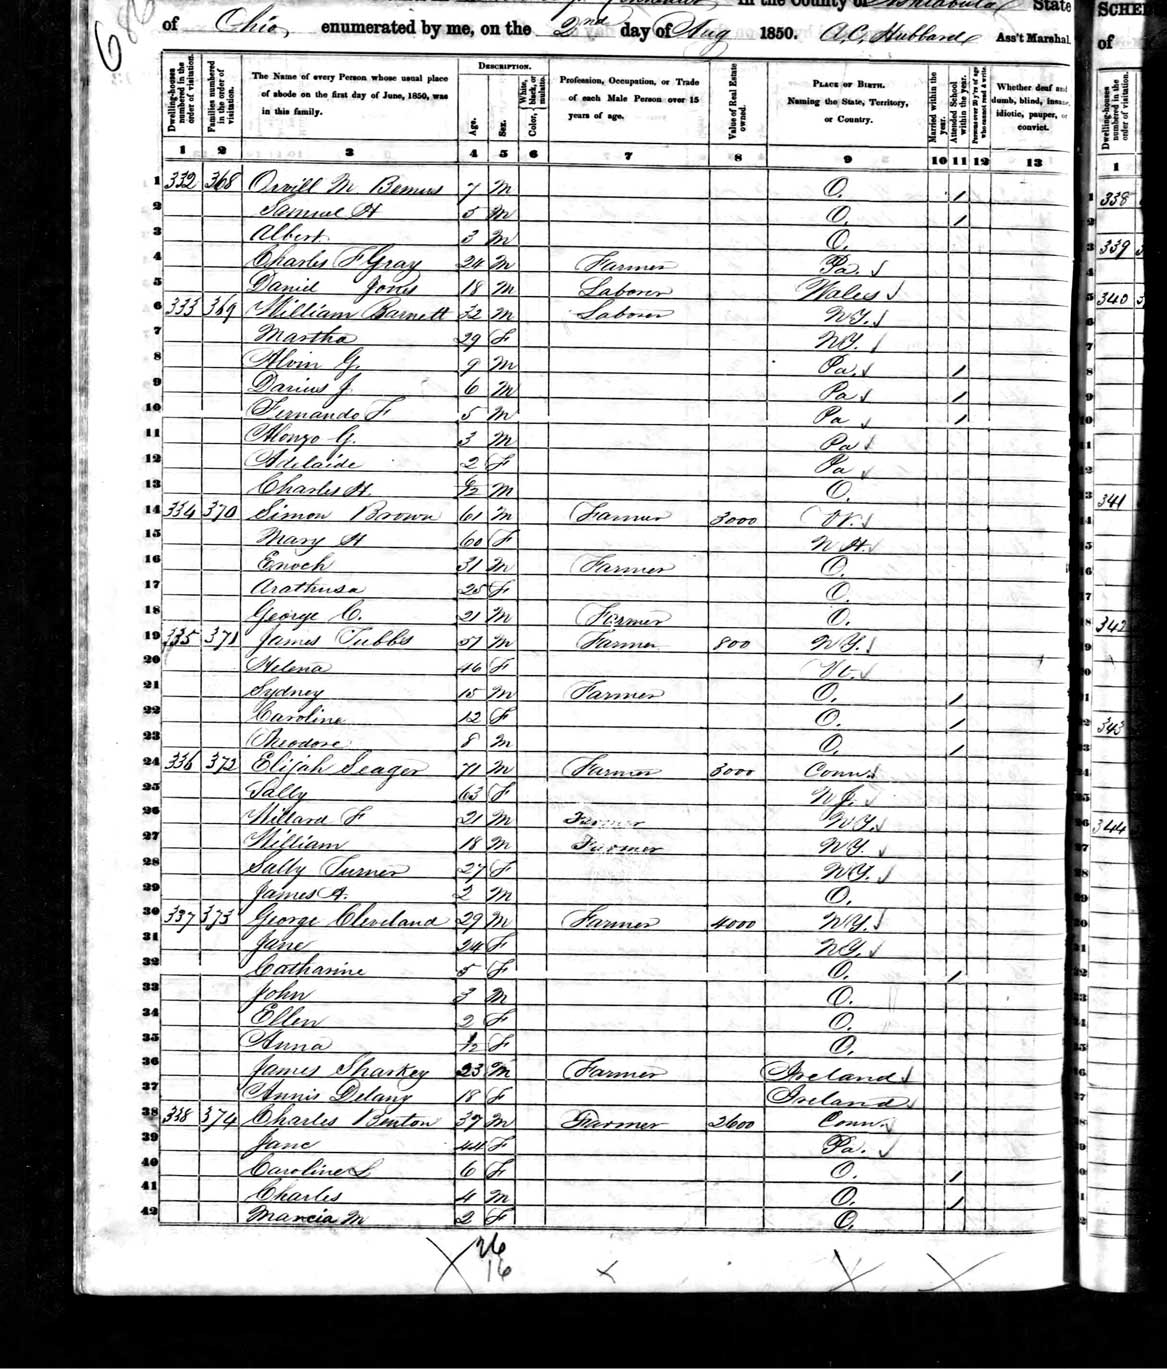 in the County of Ashtabula State
of Ohio, enumerated by me, on the 2nd day of Aug 1850. A.C. Hubbard Ass't Marshal.
Dwelling-houses numbered in the order of visitation.
Families numbered in the order of visitation.
The Name of every Person whose usual place of abode on the first day of June, 1850, was in this family.
DESCRIPTION.
Age.
Sex.
Color, White, black, or mulatto.
Profession, Occupation, or Trade of each Male Person over 15 years of age.
Value of Real Estate owned.
PLACE OF BIRTH. Naming the State, Territory, or Country.
Married within the year.
Attended School within the year.
Persons over 20 y'rs of age who cannot read & write.
Whether deaf and dumb, blind, insane, idiotic, pauper, or convict.
1 2 3 4 5 6 7 8 9 10 11 12 13
1 332 368 Orvill M Bemus 7 M O. /
2 Samuel H 5 M O. /
3 Albert 3 M O.
4 Charles F Gray 24 M Farmer Pa.
5 Daniel Jones 18 M Laborer Wales
6 333 369 William Barnett 32 M Laborer N Y.
7 Martha 29 F N Y.
8 Alvin G. 9 M Pa. /
9 Darius J 6 M Pa /
10 Fernando F 5 M Pa /
11 Alonzo G. 3 M Pa
12 Adelaide 2 F Pa
13 Charles H. M O.
14 334 370 Simon Brown 61 M Farmer 3000 Vt.
15 Mary H 60 F N H.
16 Enoch 31 M Farmer O.
17 Arathusa 25 F O.
18 George C. 21 M Farmer O.
19 335 371 James Tubbs 57 M Farmer 800 N Y.
20 Helena 46 F Vt.
21 Sydney 15 M Farmer O. /
22 Caroline 12 F O. /
23 Theodore 8 M O. /
24 336 372 Elijah Seager 71 M Farmer 3000 Conn.
25 Sally 63 F N J.
26 Willard F 21 M Farmer N Y.
27 William 18 M Farmer N Y.
28 Sally Turner 27 F N Y.
29 James A. 2 M O.
30 337 373 George Cleveland 29 M Farmer 4000 N Y.
31 Jane 24 F N Y.
32 Catharine 5 F O. /
33 John 3 M O.
34 Ellen 2 F O.
35 Anna F O.
36 James Sharkey 23 M Farmer Ireland
37 Annis Delany 18 F Ireland
38 338 374 Charles Benton 37 M Farmer 2600 Conn.
39 Jane 44 F Pa.
40 Caroline L 6 F O. /
41 Charles 4 M O. /
42 Marcia M 2 F O.
26
16
SCHED
of
Dwelling-houses numbered in the order of visitation.
1
338
339
340
341
342
343
344